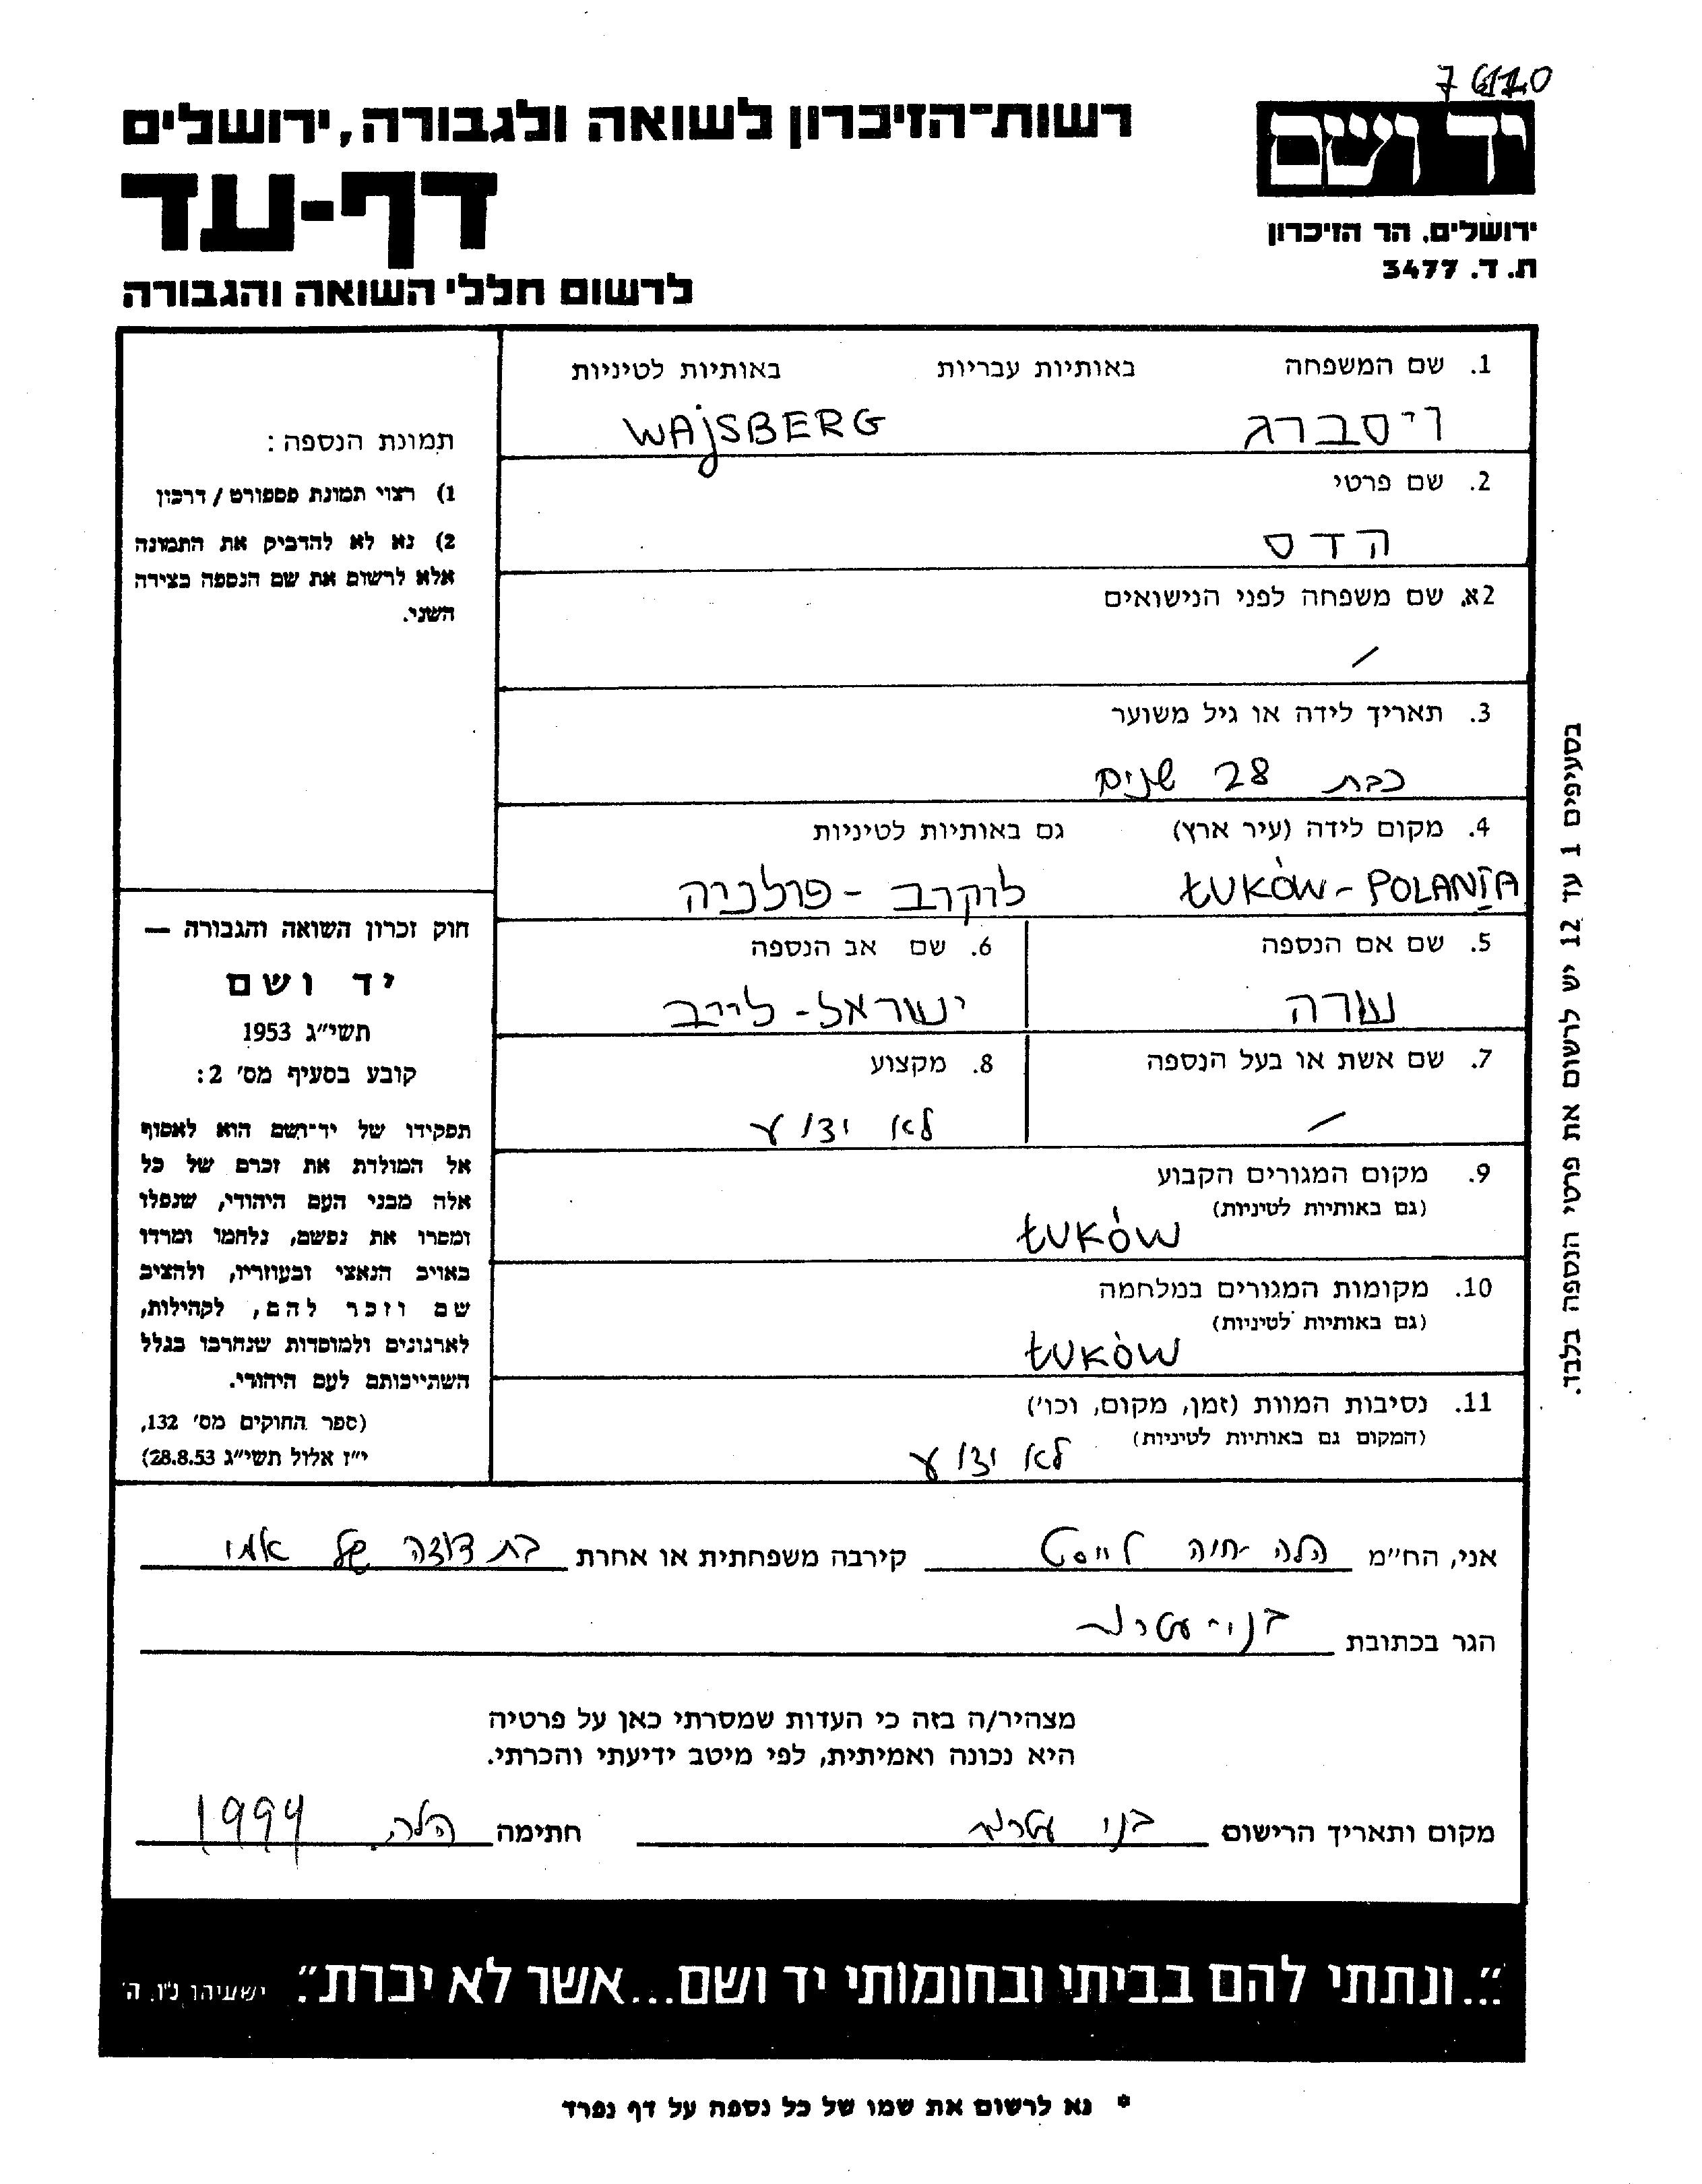 7 6110
יד ושם
ירושלים. הר הזיכרון
ת. ד. 3477
רשות־הזיכרון לשואה ולגבורה, ירושלים
דף-עד
לרשום חללי השואה והגבורה
1. שם המשפחה באותיות עבריות באותיות לטיניות
ויסברג WAjSBERG
2. שם פרטי
הדס
2א. שם משפחה לפני הנישואים
/
3. תאריך לידה או גיל משוער
כבת 28 שנים
4. מקום לידה (עיר ארץ) גם באותיות לטיניות
ŁUKÓW - POLANIA לוקרב - פולניה
5. שם אם הנספה
שרה
6. שם אב הנספה
ישראל - לייב
7. שם אשת או בעל הנספה
/
8. מקצוע
לא ידוע
9. מקום המגורים הקבוע
(גם באותיות לטיניות)
ŁUKÓW
10. מקומות המגורים במלחמה
(גם באותיות לטיניות)
ŁUKÓW
11. נסיבות המוות (זמן, מקום, וכו')
(המקום גם באותיות לטיניות)
לא ידוע
תמונת הנספה:
1) רצוי תמונת פספורט / דרכון
2) נא לא להדביק את התמונה
אלא לרשום את שם הנספה בצידה
השני.
חוק זכרון השואה והגבורה —
יד ושם
תשי"ג 1953
קובע בסעיף מס' 2:
תפקידו של יד־ושם הוא לאסוף
אל המולדת את זכרם של כל
אלה מבני העם היהודי, שנפלו
ומסרו את נפשם, נלחמו ומרדו
באויב הנאצי ובעוזריו, ולהציב
שם וזכר להם, לקהילות,
לארגונים ולמוסדות שנחרבו בגלל
השתייכותם לעם היהודי.
(ספר החוקים מס' 132,
י"ז אלול תשי"ג 28.8.53)
בסעיפים 1 עד 12 יש לרשום את פרטי הנספה בלבד.
אני, הח"מ הלה חיה קירבה משפחתית או אחרת בת דודה של אמו
הגר בכתובת בני-עטרות
מצהיר/ה בזה כי העדות שמסרתי כאן על פרטיה
היא נכונה ואמיתית, לפי מיטב ידיעתי והכרתי.
מקום ותאריך הרישום בני עטרות חתימה הלה 1994
"...ונתתי להם בביתי ובחומותי יד ושם...אשר לא יכרת". ישעיהו נ"ו, ה'
* נא לרשום את שמו של כל נספה על דף נפרד